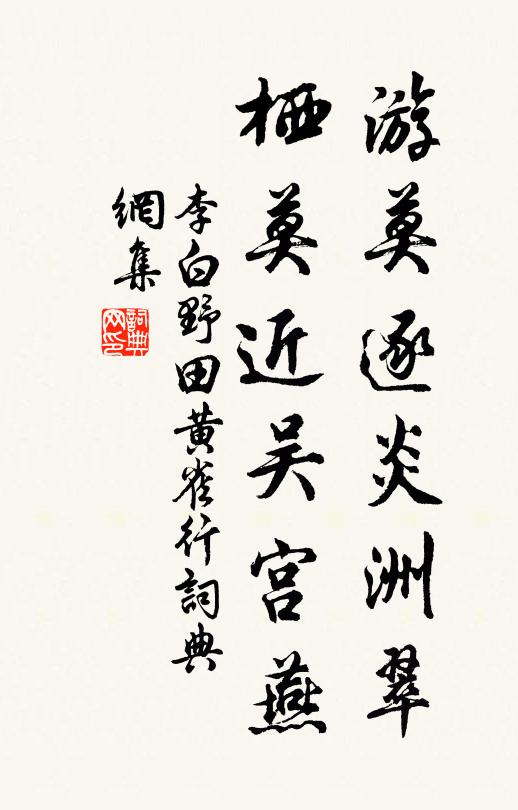 游莫逐炎洲翠
栖莫近吴宫燕
李白野田黄雀行詞典
網集
詞典
网印